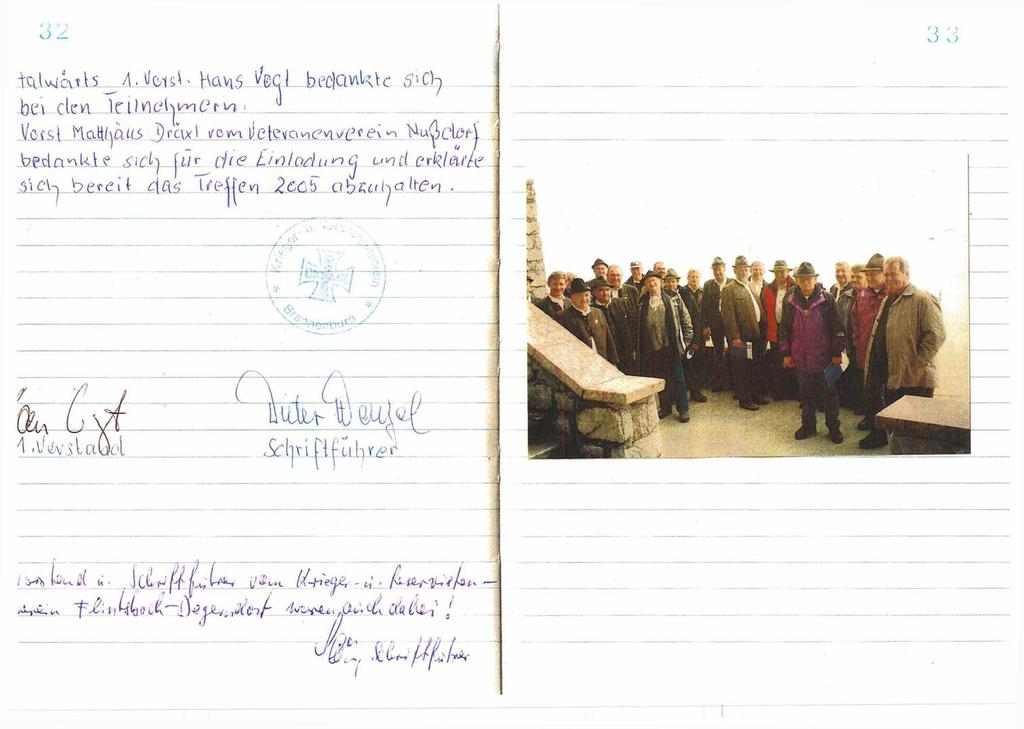 32
33
talwärts 1. Vorst. Hans Vogt bedankte sich
bei den Teilnehmern.
Vorst Matthäus Dräxl vom Veteranenverein Nußdorf
bedankte sich für die Einladung und erklärte
sich bereit das Treffen 2005 abzuhalten.
Krieger- u. Veteranenverein
Brannenburg
Vogt
1. Vorstand
Dieter Wenzel
Schriftführer
Vorstand u. Schriftführer vom Krieger- u. Reservisten-
verein Flintsbach-Degerndorf waren auch dabei!
Schriftführer